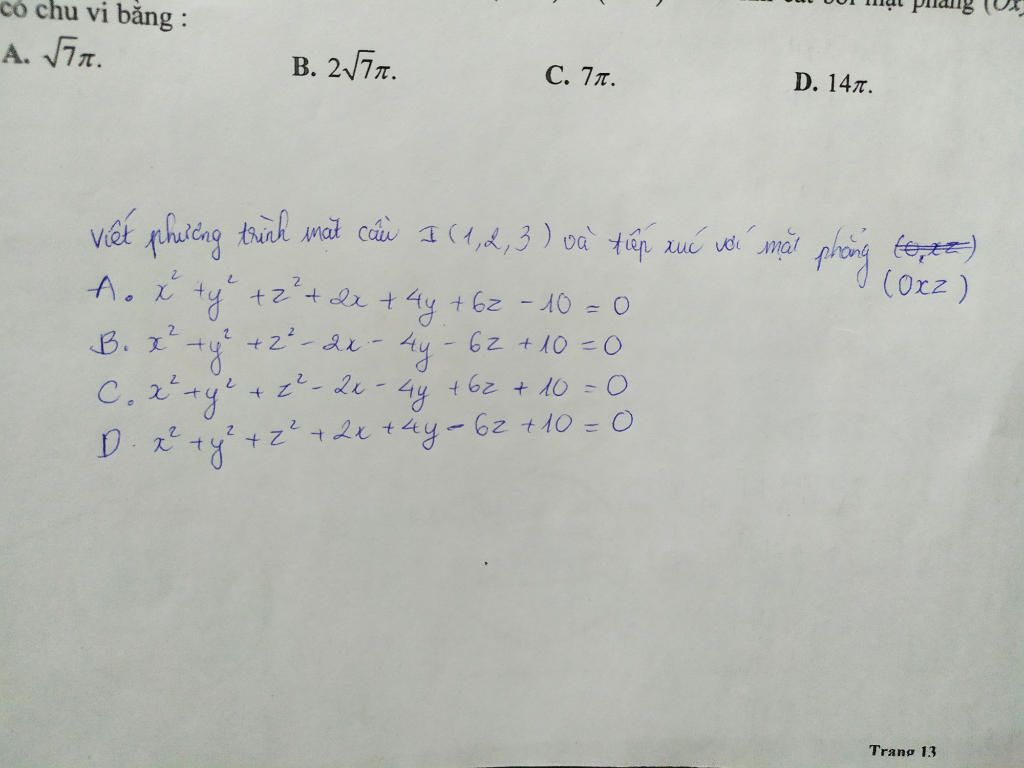 mặt phẳng (Ox
có chu vi bằng :
A. √7π. B. 2√7π. C. 7π. D. 14π.
Viết phương trình mặt cầu I (1,2,3) và tiếp xúc với mặt phẳng
(Oxz)
A. x² + y² + z² + 2x + 4y + 6z - 10 = 0
B. x² + y² + z² - 2x - 4y - 6z + 10 = 0
C. x² + y² + z² - 2x - 4y + 6z + 10 = 0
D. x² + y² + z² + 2x + 4y - 6z + 10 = 0
Trang 13